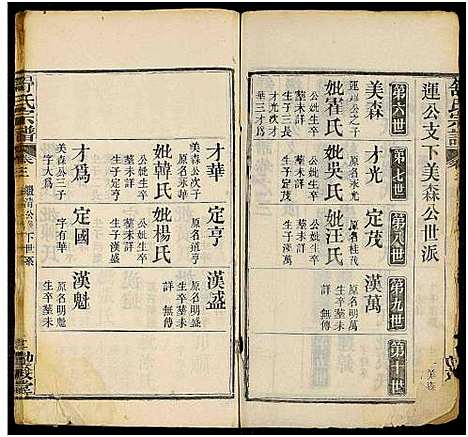 運公支下美森公世派
第六世
第七世
第八世
第九世
第十世
美森
運公之子
妣霍氏
公妣生卒
葬未詳
生子三
才光次才
華三才為
才光
原名永光
妣吳氏
公妣生卒
葬未詳
生子定茂
定茂
原名桂茂
妣汪氏
公妣生卒
葬未詳
生子漢萬
漢萬
原名明萬
生卒葬未
詳無傳
才華
美森公次子
原名永華
妣韓氏
公妣生卒
葬未詳
生子定亨
定亨
原名道亨
妣楊氏
公妣生卒
葬未詳
生子漢盛
漢盛
原名明盛
生卒葬未
詳無傳
才為
美森公三子
字大為
定國
字有華
漢魁
原名明魁
生卒葬未
舒氏宗譜
卷三
下世系